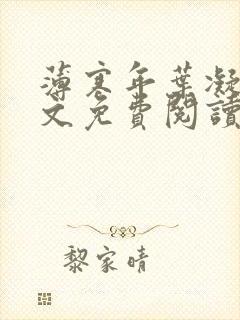 薄寒年葉凝
文免費閱讀
黎家晴